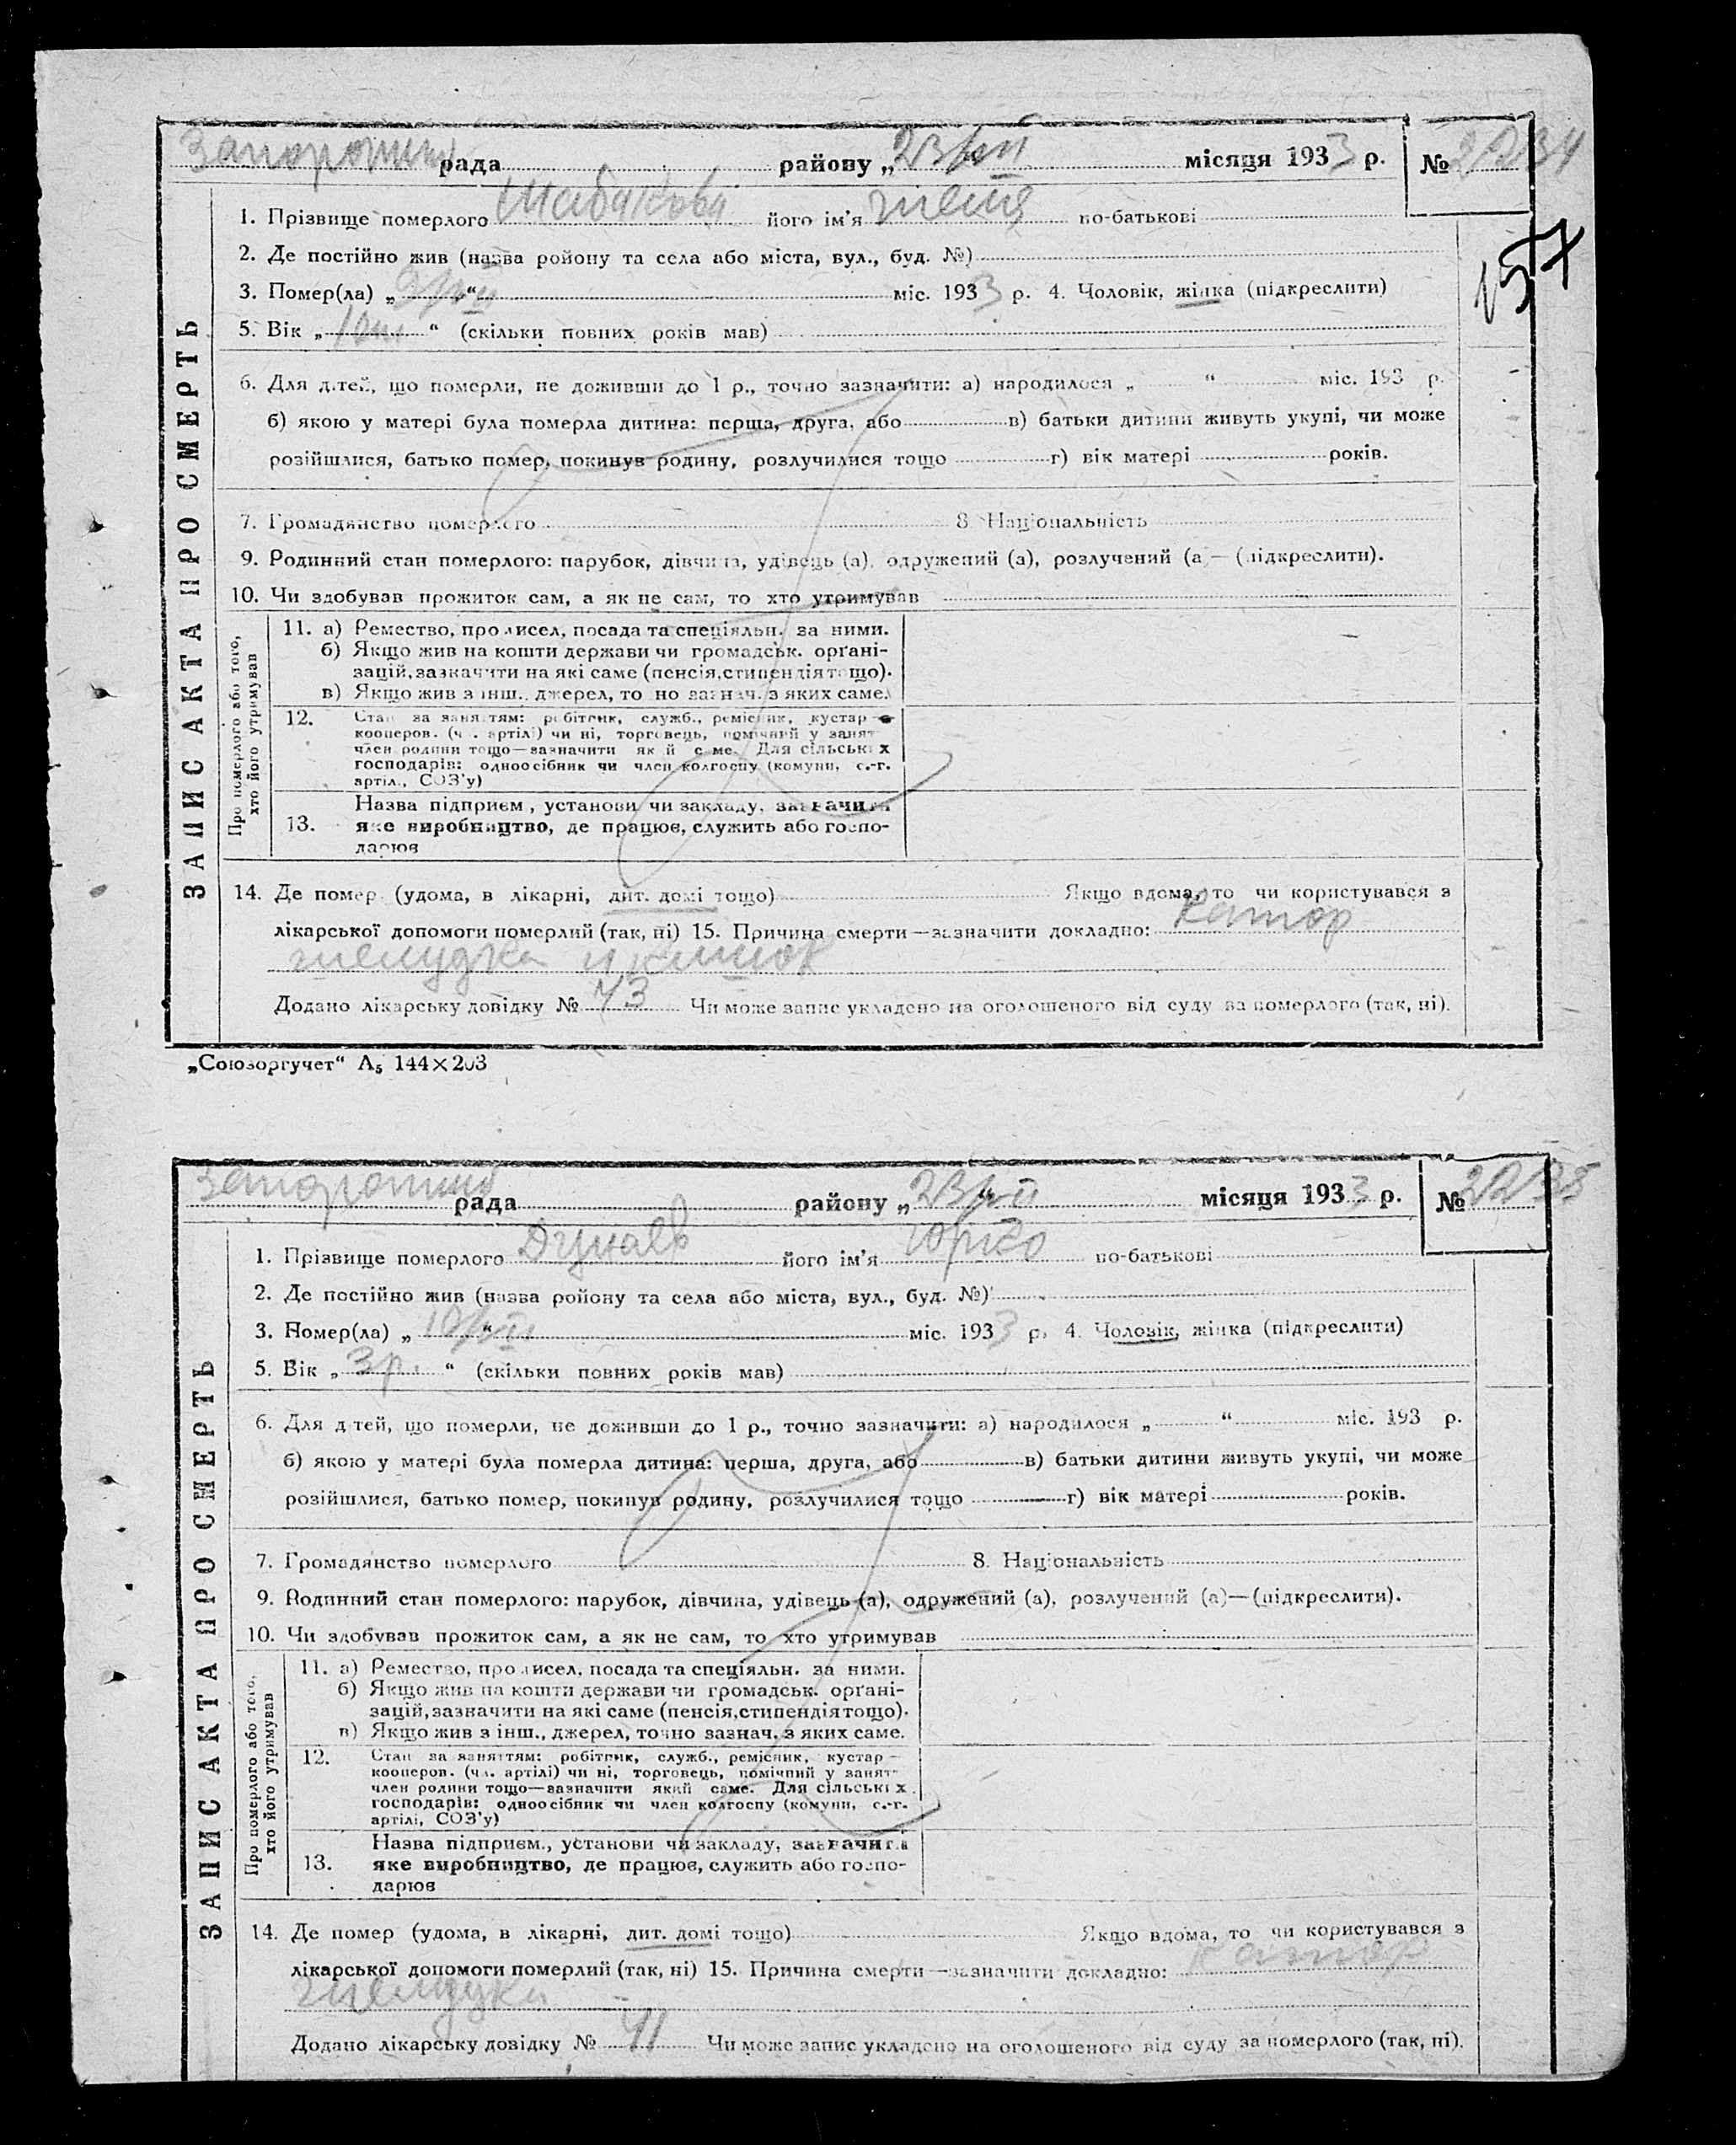 рада району „23/VII" місяця 1933 р. №
157
ЗАПИС АКТА ПРО СМЕРТЬ
1. Прізвище померлого його ім'я Женя по-батькові
2. Де постійно жив (назва ройону та села або міста, вул., буд. №)
3. Помер(ла) „ " міс. 1933 р. 4. Чоловік, жінка (підкреслити)
5. Вік „ " (скільки повних років мав)
6. Для дітей, що померли, не доживши до 1 р., точно зазначити: а) народилося „ " міс. 193 р.
б) якою у матері була померла дитина: перша, друга, або в) батьки дитини живуть укупі, чи може
розійшлися, батько помер, покинув родину, розлучилися тощо г) вік матері років.
7. Громадянство померлого 8. Національність
9. Родинний стан померлого: парубок, дівчина, удівець (а), одружений (а), розлучений (а) — (підкреслити).
10. Чи здобував прожиток сам, а як не сам, то хто утримував
Про померлого або того,
хто його утримував
11. а) Ремество, промисел, посада та спеціяльн. за ними.
б) Якщо жив на кошти держави чи громадськ. орґані-
зацій, зазначити на які саме (пенсія, стипендія тощо).
в) Якщо жив з інш., джерел, точно зазнач. з яких саме.
12. Стан за заняттям: робітник, служб., ремісник, кустар —
кооперов. (чл. артілі) чи ні, торговець, помічний у занят-
член родини тощо—зазначити який саме. Для сільських
господарів: одноосібник чи член колгоспу (комуни, с.-г.
артіл., СОЗ'у)
Назва підприєм., установи чи закладу, зазначити
13. яке виробництво, де працює, служить або госпо-
дарює
14. Де помер (удома, в лікарні, дит. домі тощо) Якщо вдома, то чи користувався з
лікарської допомоги померлий (так, ні) 15. Причина смерти—зазначити докладно: Катар
желудка и кишок
Додано лікарську довідку № 73 Чи може запис укладено на оголошеного від суду за померлого (так, ні).
„Союзоргучет" А₅ 144×203
рада району „23/VII" місяця 1933 р. №
ЗАПИС АКТА ПРО СМЕРТЬ
1. Прізвище померлого Дунаєв його ім'я по-батькові
2. Де постійно жив (назва ройону та села або міста, вул., буд. №)
3. Помер(ла) „ " міс. 1933 р. 4. Чоловік, жінка (підкреслити)
5. Вік „ 3 р. " (скільки повних років мав)
6. Для дітей, що померли, не доживши до 1 р., точно зазначити: а) народилося „ " міс. 193 р.
б) якою у матері була померла дитина: перша, друга, або в) батьки дитини живуть укупі, чи може
розійшлися, батько помер, покинув родину, розлучилися тощо г) вік матері років.
7. Громадянство померлого 8. Національність
9. Родинний стан померлого: парубок, дівчина, удівець (а), одружений (а), розлучений (а)—(підкреслити).
10. Чи здобував прожиток сам, а як не сам, то хто утримував
Про померлого або того,
хто його утримував
11. а) Ремество, промисел, посада та спеціяльн. за ними.
б) Якщо жив на кошти держави чи громадськ. орґані-
зацій, зазначити на які саме (пенсія, стипендія тощо).
в) Якщо жив з інш., джерел, точно зазнач. з яких саме.
12. Стан за заняттям: робітник, служб., ремісник, кустар —
кооперов. (чл. артілі) чи ні, торговець, помічний у занят-
член родини тощо—зазначити який саме. Для сільських
господарів: одноосібник чи член колгоспу (комуни, с.-г.
артілі, СОЗ'у)
Назва підприєм., установи чи закладу, зазначити
13. яке виробництво, де працює, служить або госпо-
дарює
14. Де помер (удома, в лікарні, дит. домі тощо) Якщо вдома, то чи користувався з
лікарської допомоги померлий (так, ні) 15. Причина смерти—зазначити докладно: Катар
желудка
Додано лікарську довідку № Чи може запис укладено на оголошеного від суду за померлого (так, ні).